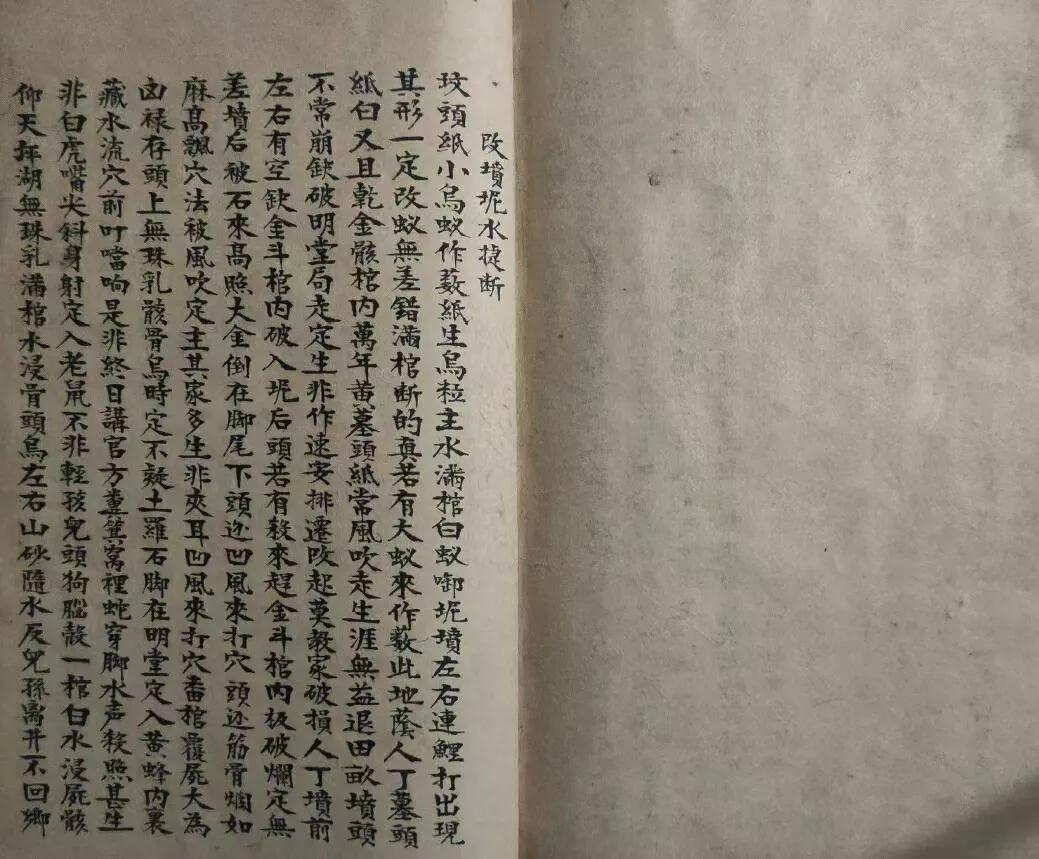 改墳坭水捷断
坟頭紙小烏蚁作薮紙生烏粒主水滿棺白蚁啣坭墳左右連鯉打出現
其形一定改蚁無差錯滿棺断的真若有大蚁來作薮此地蔭人丁墓頭
紙白又且乾金骸棺内萬年黄墓頭紙常風吹走生涯無益退田畝墳頭
不常崩缺破明堂局走定生非作速安排遷改起莫教家破損人丁墳前
左右有空缺金斗棺内破入坭后頭若有殺來趕金斗棺内极破爛定無
差墳后被石來高照大金倒在脚尾下頭迯凹風來打穴頭迯筋骨烟如
麻高飄穴法被風吹定主其家多生非夾耳凹風來打穴畨棺覆屍大為
凶禄存頭上無珠乳骸骨烏時定不疑土羅石脚在明堂定入黄蜂内裏
藏水流穴前叮噹响是非終日講官方糞箕窩裡蛇穿脚水声殺照甚生
非白虎嘴尖斜身射定入老鼠不非輕孩兒頭狗腦殼一棺白水浸屍骸
仰天拜湖無珠乳滿棺水浸骨頭烏左右山砂隨水反兒孫离井不回鄉